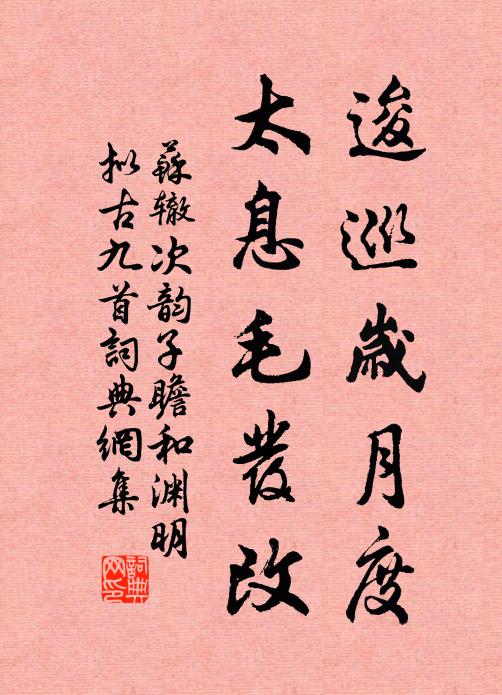 逡巡歲月度
太息毛發改
蘇辙次韵子瞻和渊明
拟古九首詞典網集
詞典网印